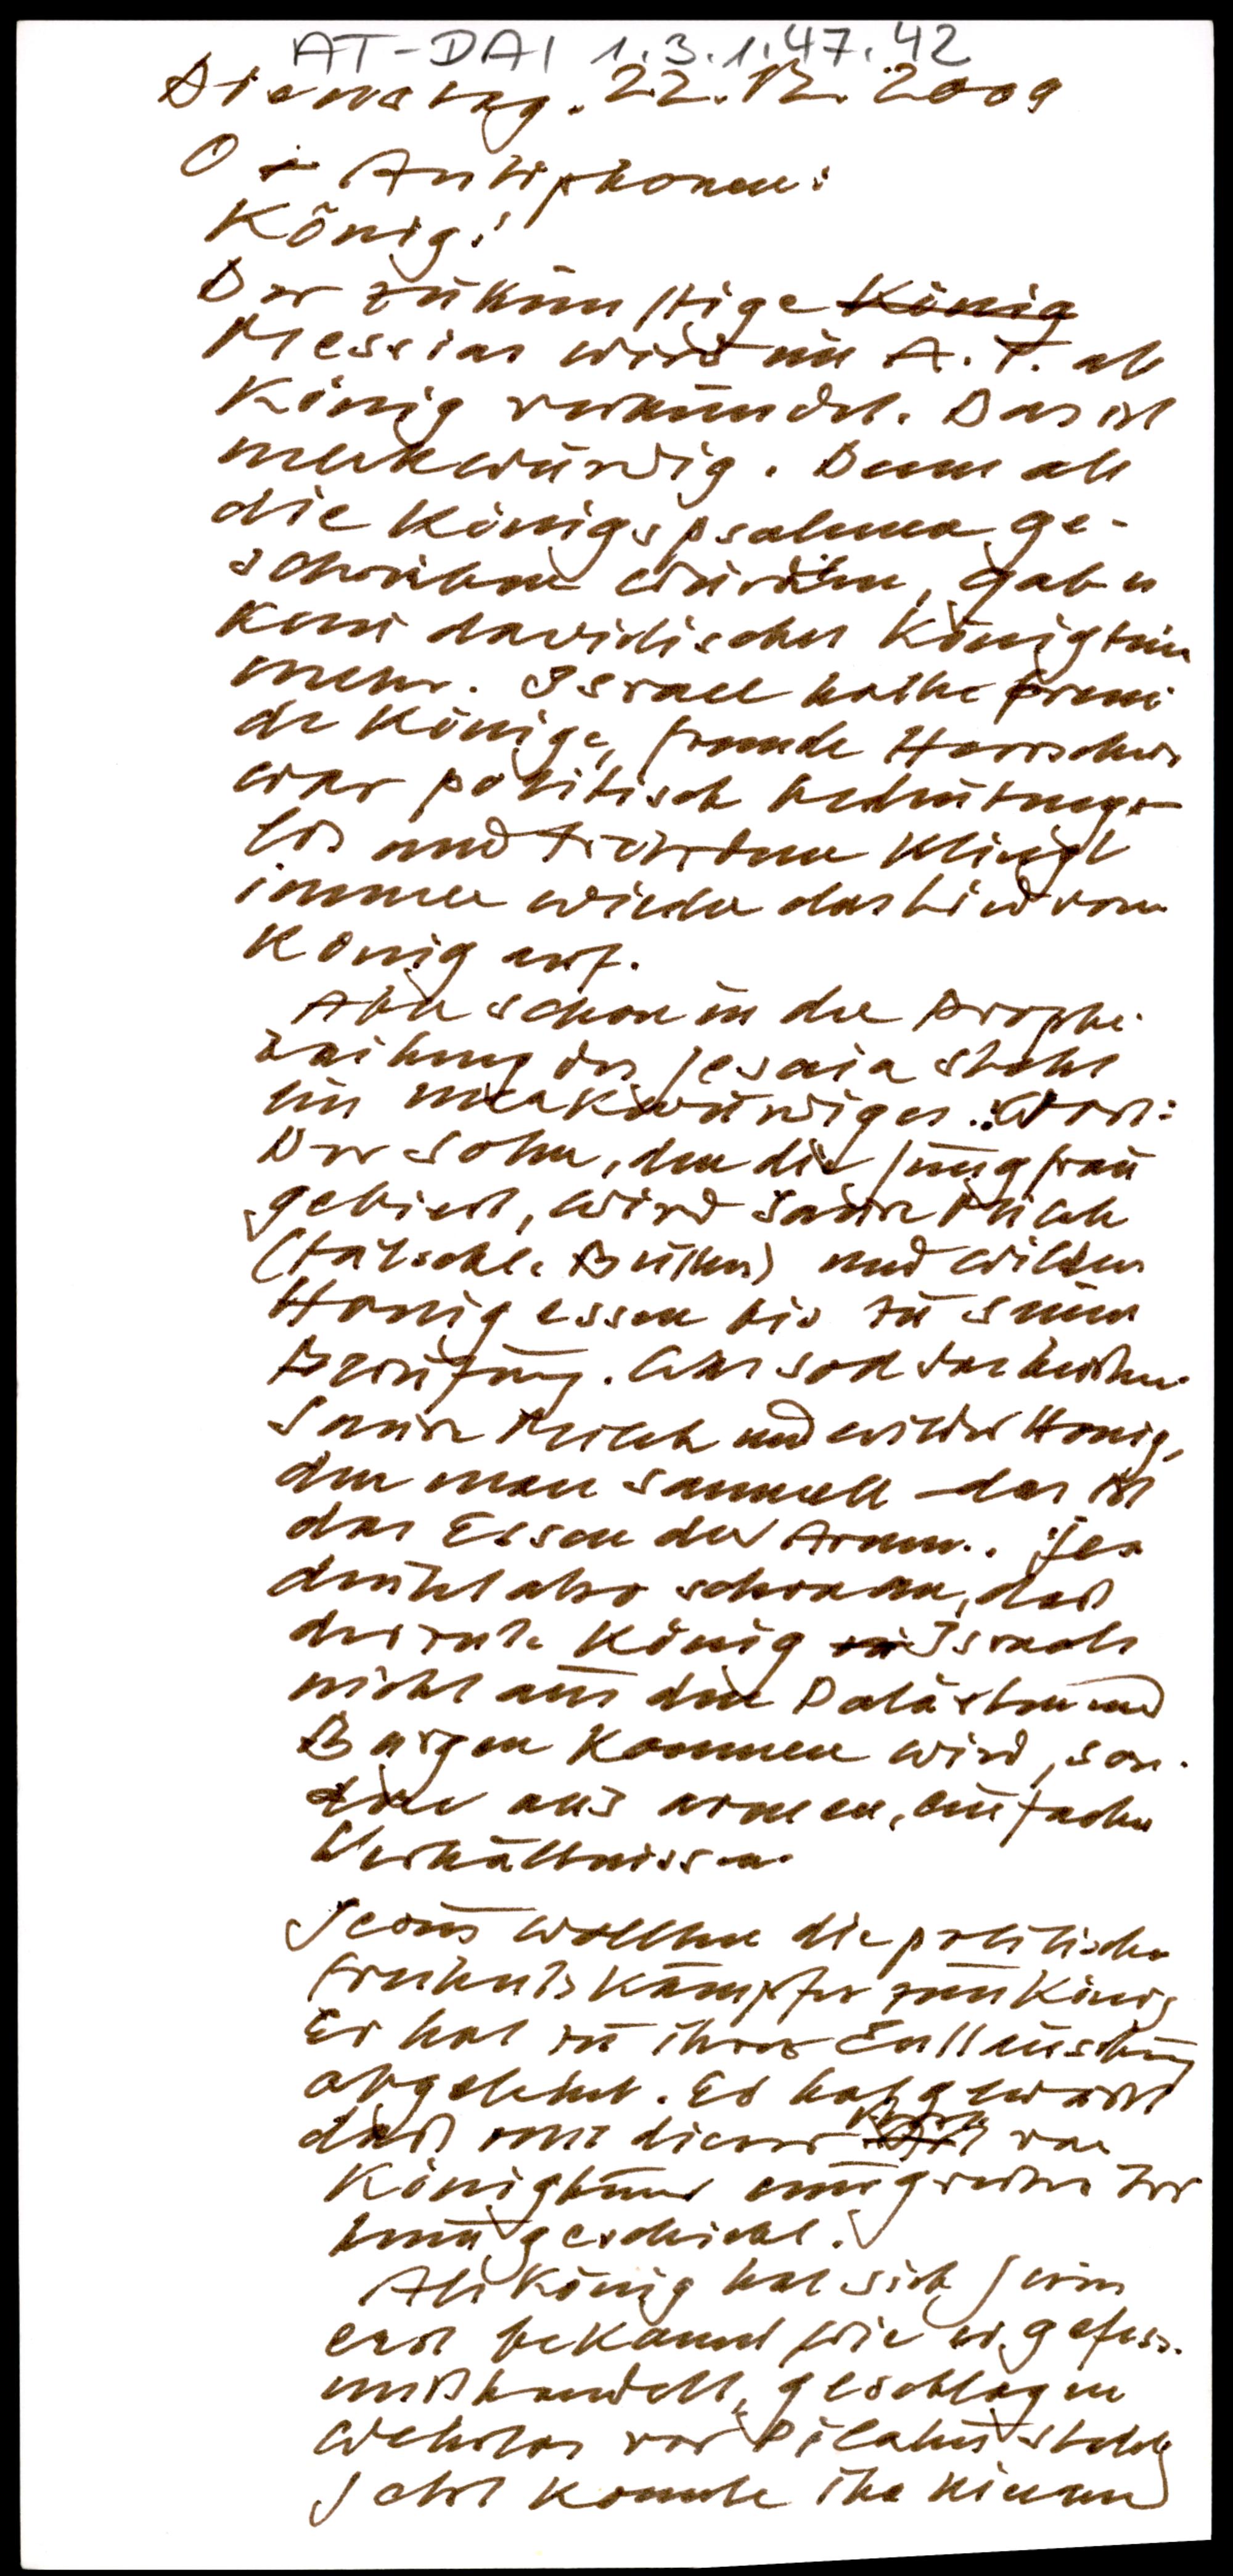 AT-DAI 1.3.1.47.42
Dienstag. 22.12.2009
O Antiphonen:
König!
Der zukünftige König
Messias wird im A.T. als
König verkündet. Das ist
merkwürdig. Denn als
die Königspsalmen ge-
schrieben wurden, gab es
kein davidisches Königtum
mehr. Israel hatte frem
de Könige, fremde Herrscher
war politisch bedeutungs
los und trotzdem klingt
immer wieder das Lied vom
König auf.
Aber schon in der Prophe
zeihung des Jesaia steht
ein merkwürdiges Wort:
Der Sohn, den die Jungfrau
gebiert, wird saure Milch
(fälschl. Butter) und wilden
Honig essen bis zu seiner
Berufung. Was soll das heißen.
Saure Milch und wilder Honig,
den man sammelt - das ist
das Essen der Armen. Jes
deutet also schon an, daß
der rechte König Israels
nicht aus den Palästen und
Burgen kommen wird, son
dern aus armen, einfachen
Verhältnissen.
Jesus wollten die politischen
Freiheitskämpfer zum König
Er hat zu ihrer Enttäuschung
abgelehnt. Er hat gewusst
daß mit dieser von
Königtum
geschieht.
Als König hat sich Jesus
erst bekannt, wie er gefess.
mißhandelt, geschlagen
wehrlos vor Pilatus steht
Jetzt konnte ihn niemand